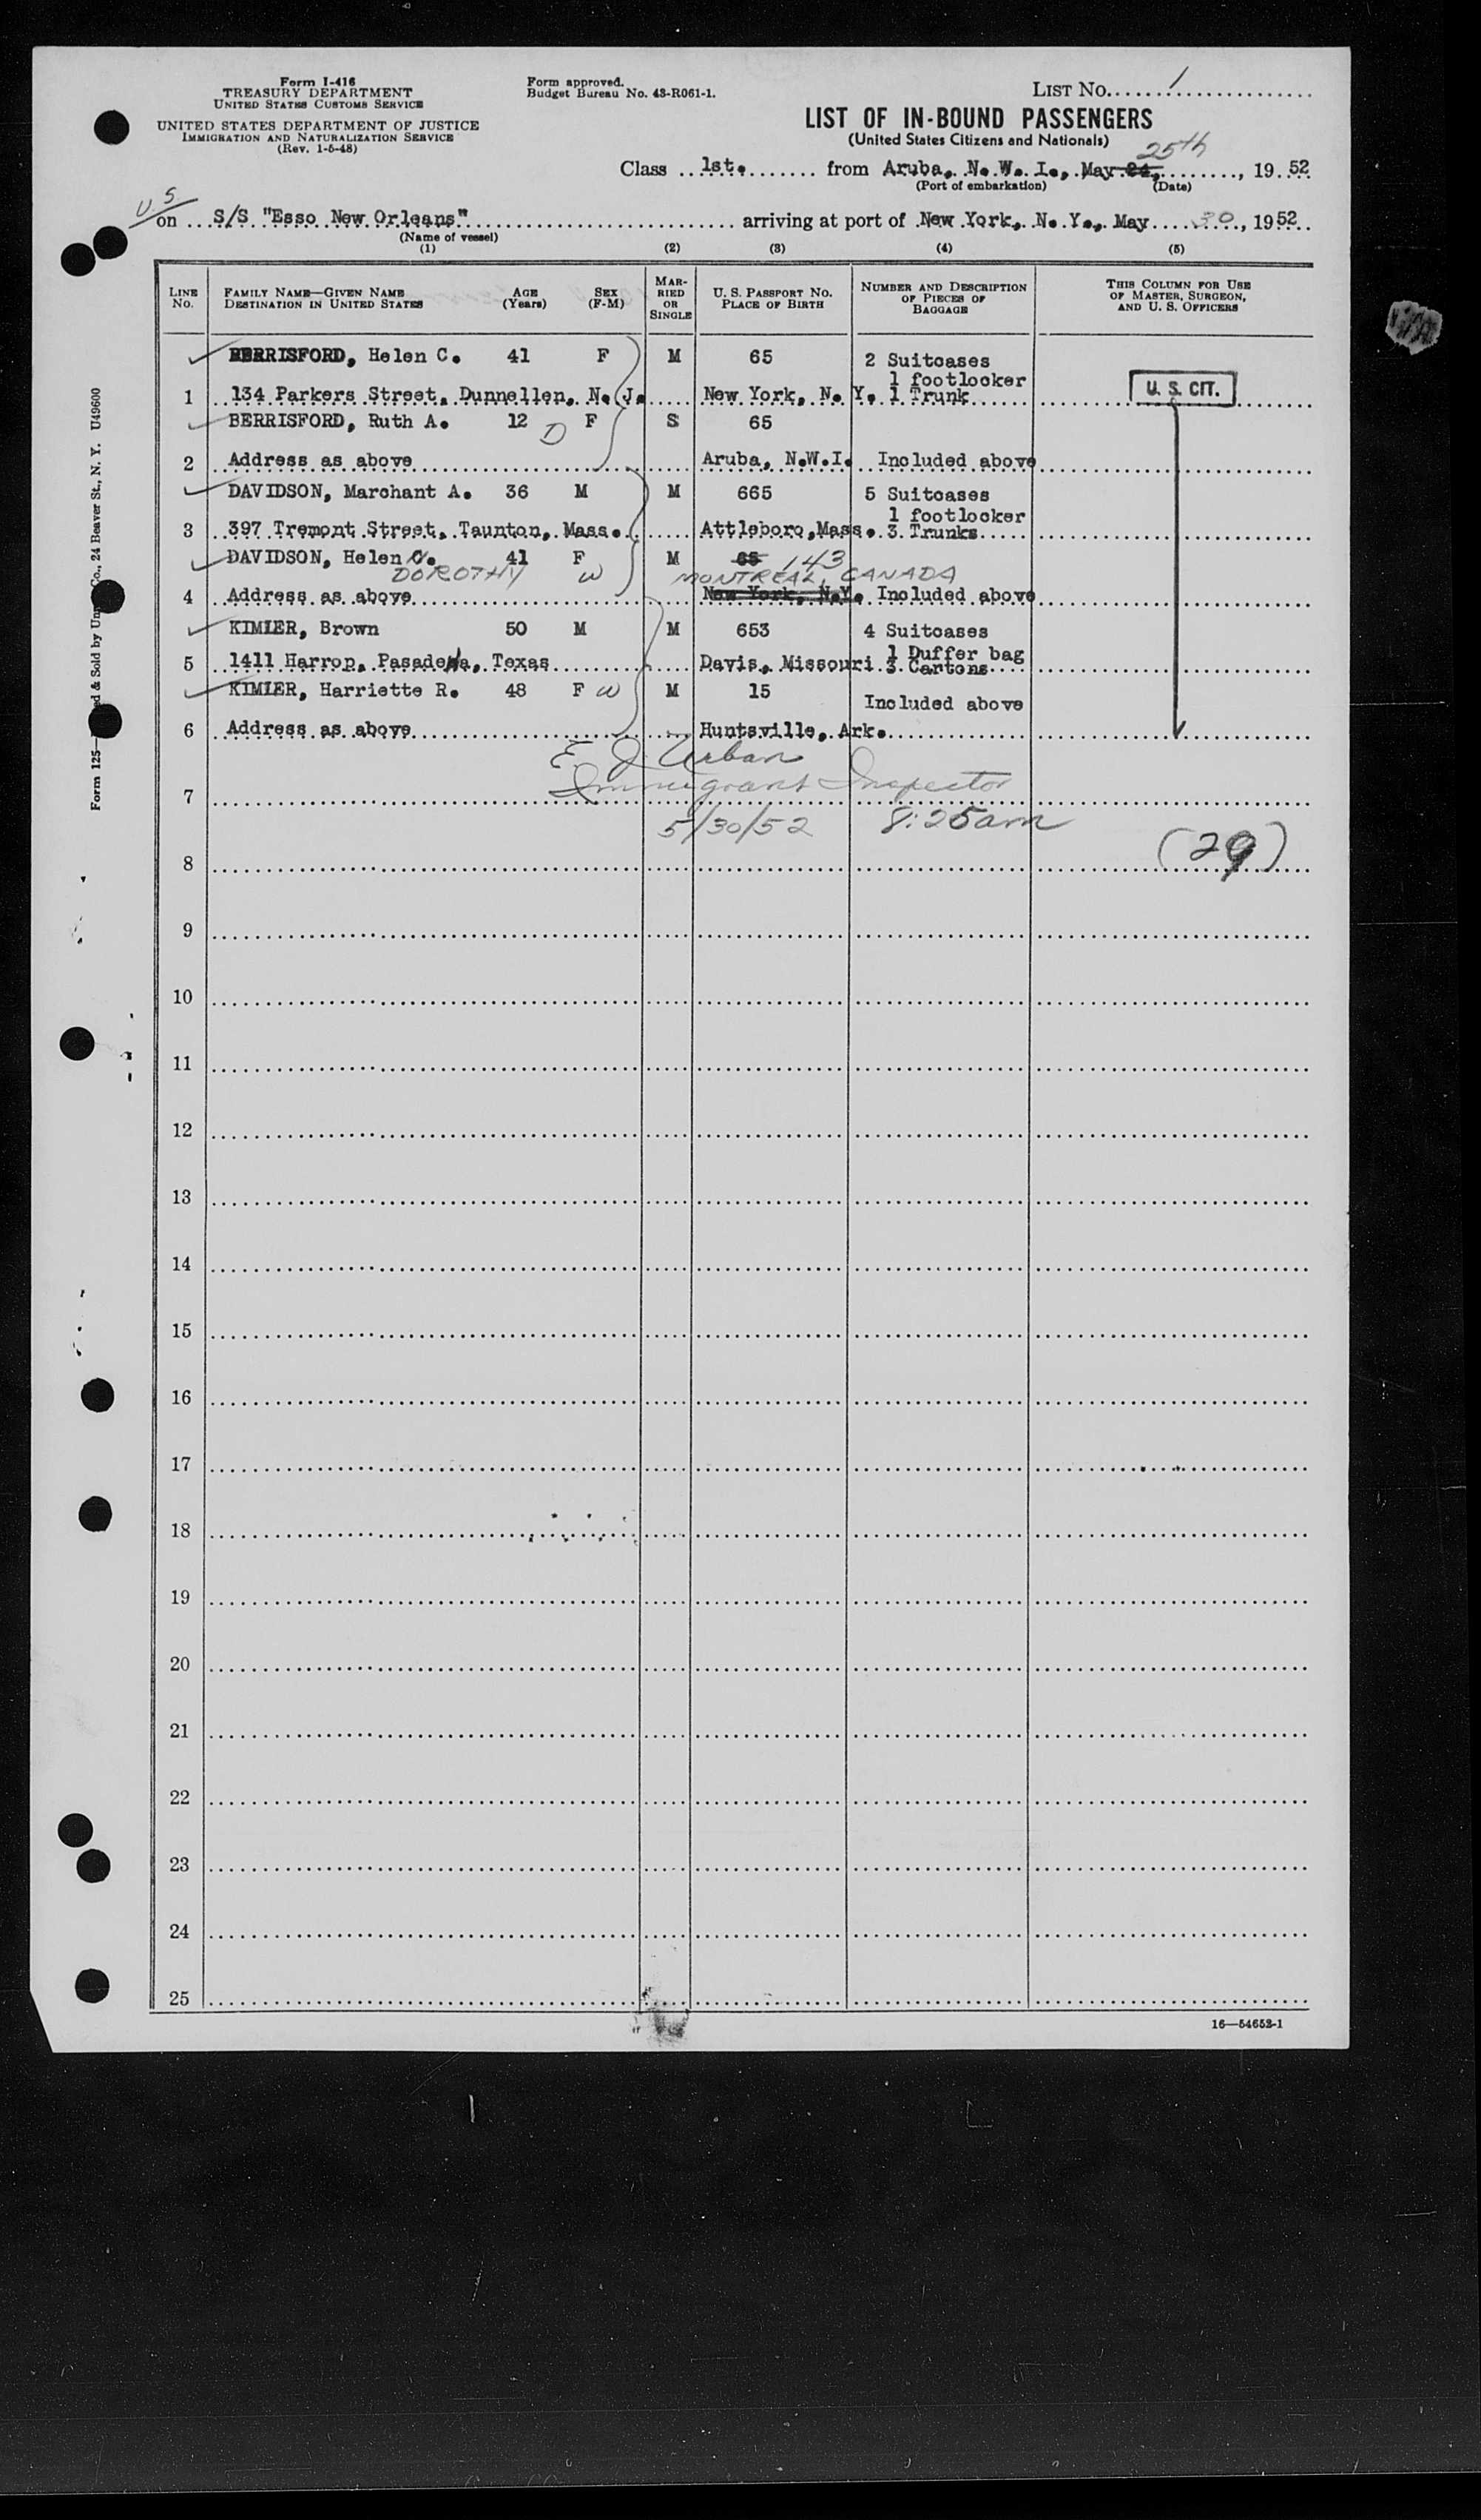 Form I-416
TREASURY DEPARTMENT
UNITED STATES CUSTOMS SERVICE
UNITED STATES DEPARTMENT OF JUSTICE
IMMIGRATION AND NATURALIZATION SERVICE
(Rev. 1-5-48)
Form approved.
Budget Bureau No. 43-R061-1.
LIST NO. 1
LIST OF IN-BOUND PASSENGERS
(United States Citizens and Nationals)
25th
Class 1st. from Aruba, N. W. I., May 24, 19 52
(Port of embarkation) (Date)
US
on S/S "Esso New Orleans" arriving at port of New York, N. Y., May 30, 1952
(Name of vessel)
(1) (2) (3) (4) (5)
LINE No. FAMILY NAME—GIVEN NAME DESTINATION IN UNITED STATES AGE (Years) SEX (F-M) MARRIED OR SINGLE U. S. PASSPORT NO. PLACE OF BIRTH NUMBER AND DESCRIPTION OF PIECES OF BAGGAGE THIS COLUMN FOR USE OF MASTER, SURGEON, AND U. S. OFFICERS
BERRISFORD, Helen C. 41 F M 65 2 Suitcases
1 footlocker
1 134 Parkers Street, Dunnellen, N. J. New York, N. Y. 1 Trunk U. S. CIT.
BERRISFORD, Ruth A. 12 D F S 65
2 Address as above Aruba, N.W.I. Included above
DAVIDSON, Marchant A. 36 M M 665 5 Suitcases
1 footlocker
3 397 Tremont Street, Taunton, Mass. Attleboro, Mass. 3 Trunks
DAVIDSON, Helen C. 41 F M 65 143
DOROTHY W MONTREAL, CANADA
4 Address as above New York, N.Y. Included above
KIMLER, Brown 50 M M 653 4 Suitcases
1 Duffer bag
5 1411 Harrop, Pasadena, Texas Davis, Missouri 3 Cartons
KIMLER, Harriette R. 48 F W M 15 Included above
6 Address as above Huntsville, Ark.
E. J. Urban
Immigrant Inspector
7
5/30/52 8:25am
(29)
8
9
10
11
12
13
14
15
16
17
18
19
20
21
22
23
24
25
16—54652-1
Form 125— & Sold by Co., 24 Beaver St., N. Y. U49600